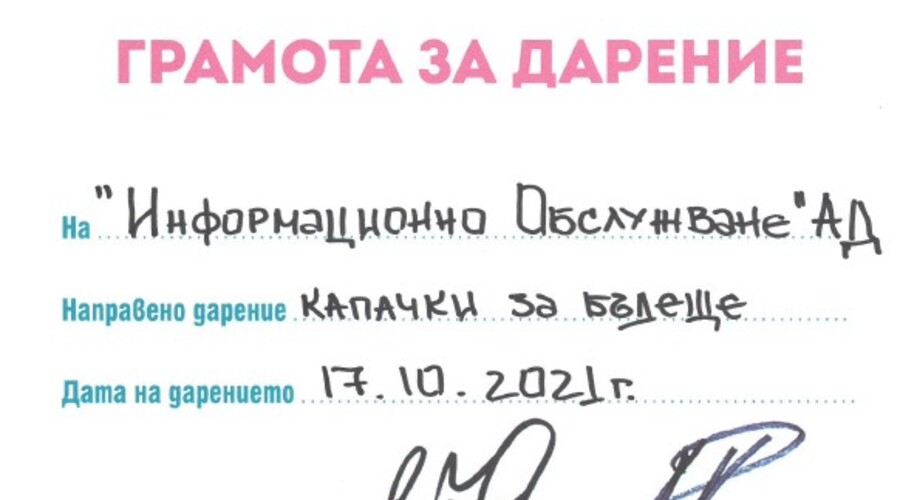 ГРАМОТА ЗА ДАРЕНИЕ
На "Информационно Обслужване" АД
Направено дарение капачки за бъдеще
Дата на дарението 17.10.2021г.